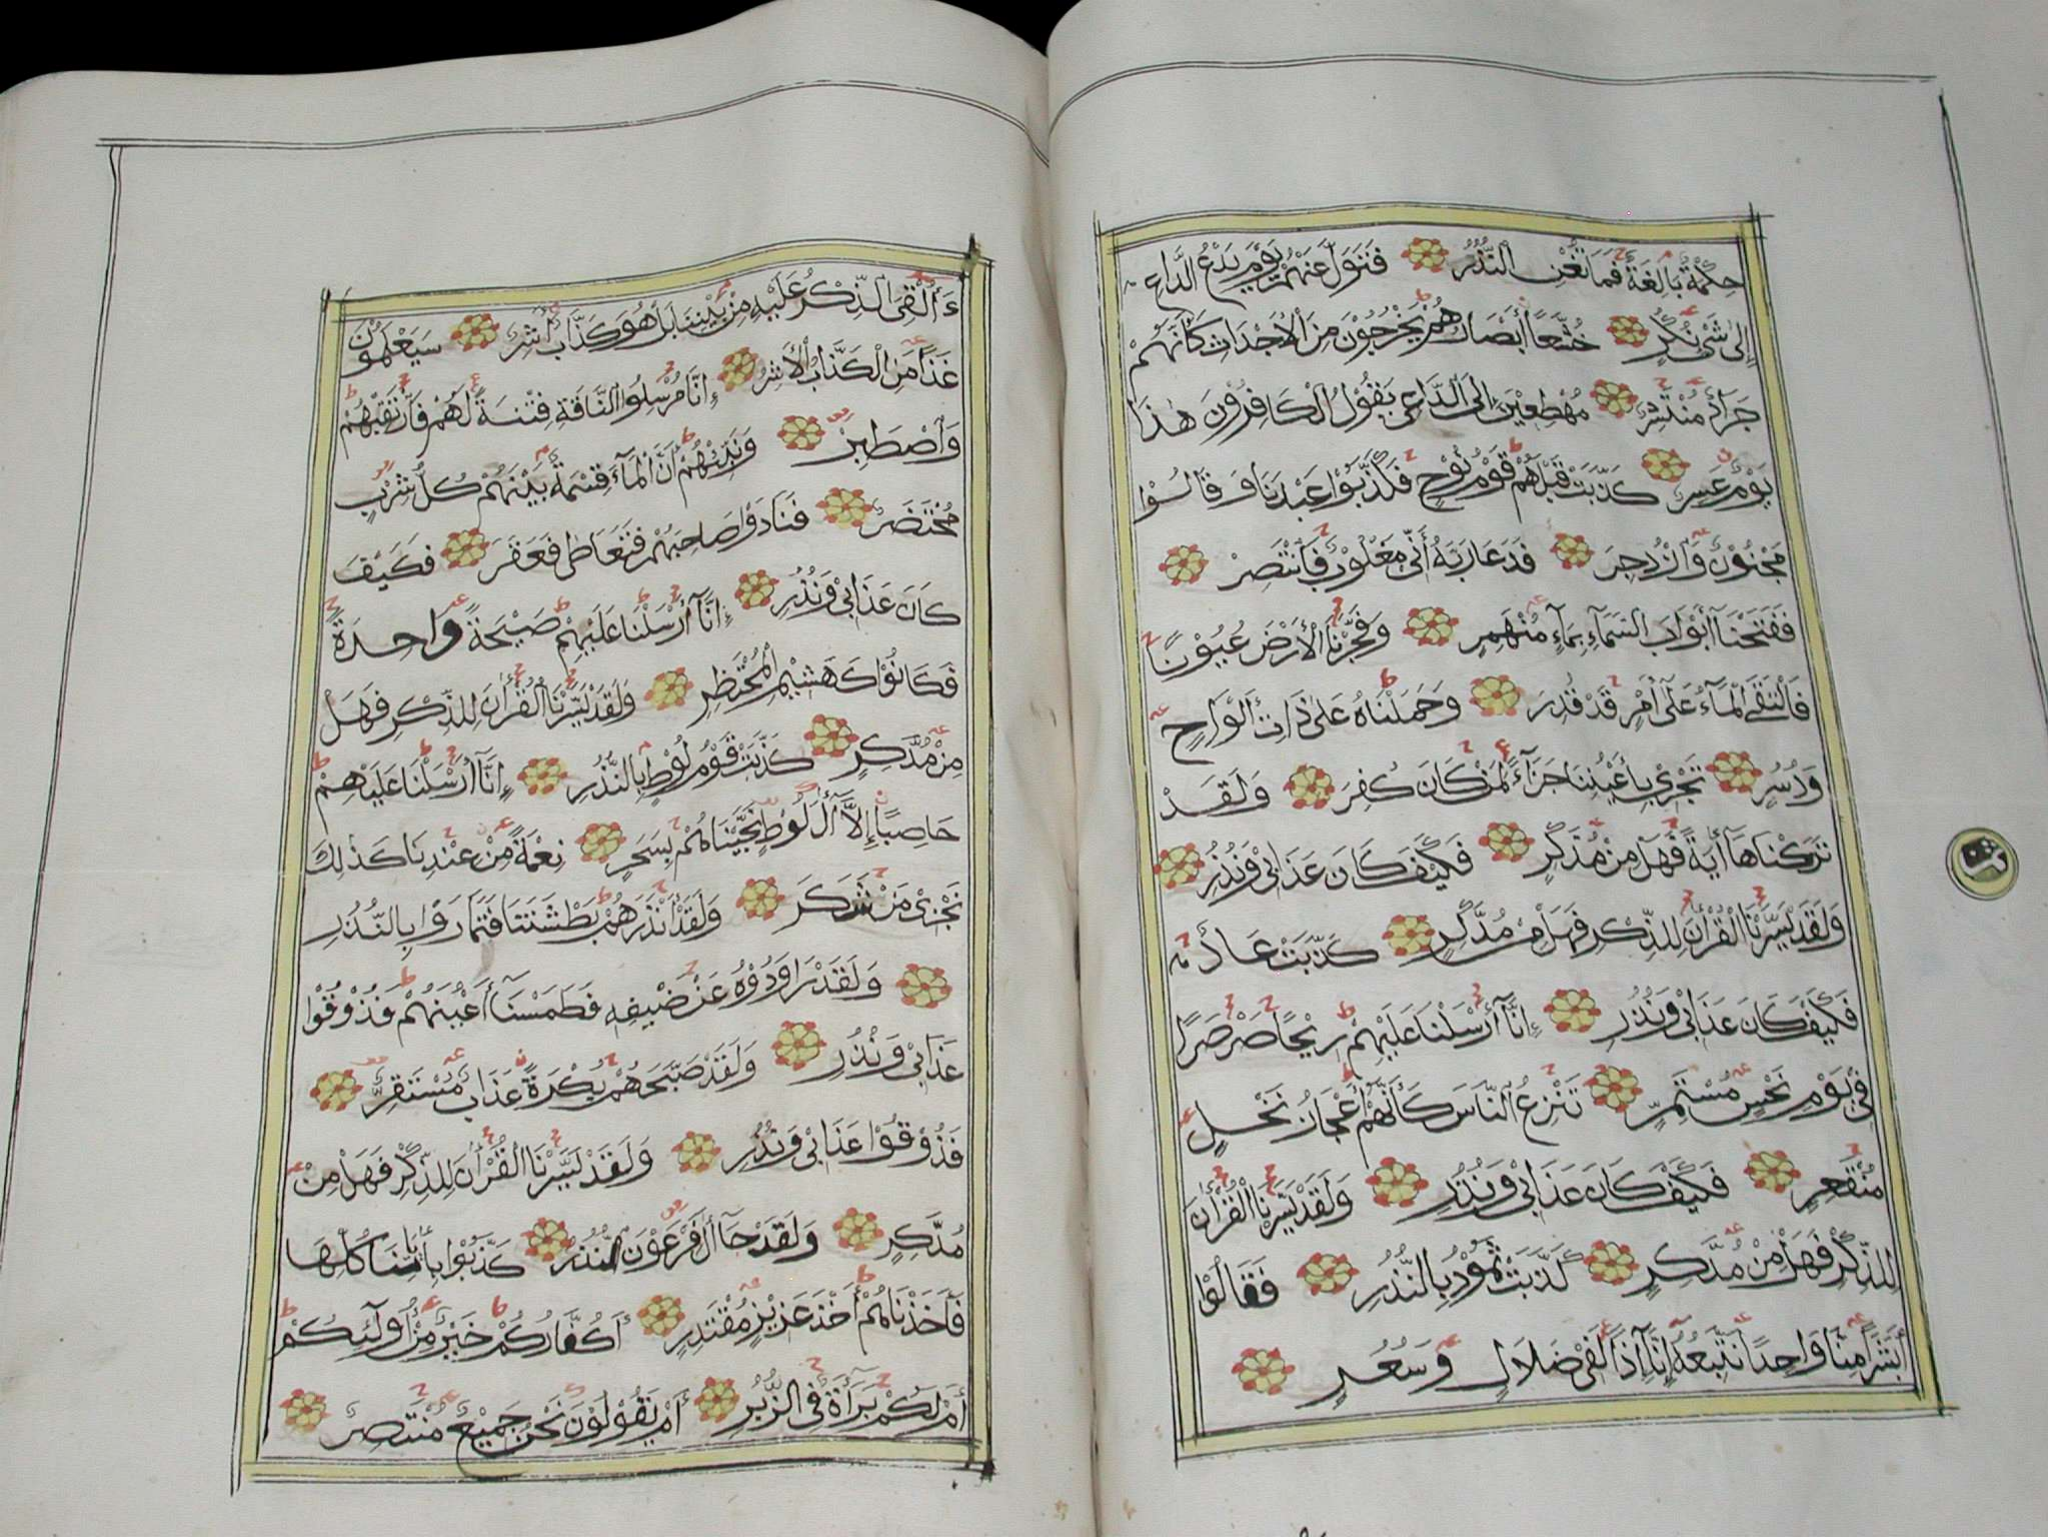 حِكْمَةٌ بَالِغَةٌ فَمَا تُغْنِ النُّذُرُ فَتَوَلَّ عَنْهُمْ يَوْمَ يَدْعُ الدَّاعِ
إِلٰى شَىْءٍ نُكُرٍ خُشَّعًا أَبْصَارُهُمْ يَخْرُجُوْنَ مِنَ الْأَجْدَاثِ كَأَنَّهُمْ
جَرَادٌ مُنْتَشِرٌ مُهْطِعِيْنَ إِلَى الدَّاعِى يَقُوْلُ الْكَافِرُوْنَ هٰذَا
يَوْمٌ عَسِرٌ كَذَّبَتْ قَبْلَهُمْ قَوْمُ نُوْحٍ فَكَذَّبُوْا عَبْدَنَا وَقَالُوْا
مَجْنُوْنٌ وَازْدُجِرَ فَدَعَا رَبَّهُ أَنِّى مَغْلُوْبٌ فَانْتَصِرْ
فَفَتَحْنَا أَبْوَابَ السَّمَآءِ بِمَآءٍ مُنْهَمِرٍ وَفَجَّرْنَا الْأَرْضَ عُيُوْنًا
فَالْتَقَى الْمَآءُ عَلٰٓى أَمْرٍ قَدْ قُدِرَ وَحَمَلْنَاهُ عَلٰى ذَاتِ أَلْوَاحٍ
وَدُسُرٍ تَجْرِىْ بِأَعْيُنِنَا جَزَآءً لِمَنْ كَانَ كُفِرَ وَلَقَدْ
تَرَكْنَاهَآ أٰيَةً فَهَلْ مِنْ مُدَّكِرٍ فَكَيْفَ كَانَ عَذَابِىْ وَنُذُرِ
وَلَقَدْ يَسَّرْنَا الْقُرْأٰنَ لِلذِّكْرِ فَهَلْ مِنْ مُدَّكِرٍ كَذَّبَتْ عَادٌ
فَكَيْفَ كَانَ عَذَابِىْ وَنُذُرِ إِنَّآ أَرْسَلْنَا عَلَيْهِمْ رِيْحًا صَرْصَرًا
فِىْ يَوْمِ نَحْسٍ مُسْتَمِرٍّ تَنْزِعُ النَّاسَ كَأَنَّهُمْ أَعْجَازُ نَخْلٍ
مُنْقَعِرٍ فَكَيْفَ كَانَ عَذَابِىْ وَنُذُرِ وَلَقَدْ يَسَّرْنَا الْقُرْأٰنَ
لِلذِّكْرِ فَهَلْ مِنْ مُدَّكِرٍ كَذَّبَتْ ثَمُوْدُ بِالنُّذُرِ فَقَالُوْا
أَبَشَرًا مِنَّا وَاحِدًا نَتَّبِعُهُ إِنَّآ إِذًا لَفِىْ ضَلَالٍ وَسُعُرٍ
ءَأُلْقِىَ الذِّكْرُ عَلَيْهِ مِنْ بَيْنِنَا بَلْ هُوَ كَذَّابٌ أَشِرٌ سَيَعْلَمُوْنَ
غَدًا مَنِ الْكَذَّابُ الْأَشِرُ إِنَّا مُرْسِلُوا النَّاقَةِ فِتْنَةً لَهُمْ فَارْتَقِبْهُمْ
وَاصْطَبِرْ وَنَبِّئْهُمْ أَنَّ الْمَآءَ قِسْمَةٌ بَيْنَهُمْ كُلُّ شِرْبٍ
مُحْتَضَرٌ فَنَادَوْا صَاحِبَهُمْ فَتَعَاطٰى فَعَقَرَ فَكَيْفَ
كَانَ عَذَابِىْ وَنُذُرِ إِنَّآ أَرْسَلْنَا عَلَيْهِمْ صَيْحَةً وَاحِدَةً
فَكَانُوْا كَهَشِيْمِ الْمُحْتَظِرِ وَلَقَدْ يَسَّرْنَا الْقُرْأٰنَ لِلذِّكْرِ فَهَلْ
مِنْ مُدَّكِرٍ كَذَّبَتْ قَوْمُ لُوْطٍ بِالنُّذُرِ إِنَّآ أَرْسَلْنَا عَلَيْهِمْ
حَاصِبًا إِلَّآ أٰلَ لُوْطٍ نَجَّيْنَاهُمْ بِسَحَرٍ نِعْمَةً مِنْ عِنْدِنَا كَذٰلِكَ
نَجْزِىْ مَنْ شَكَرَ وَلَقَدْ أَنْذَرَهُمْ بَطْشَتَنَا فَتَمَارَوْا بِالنُّذُرِ
وَلَقَدْ رَاوَدُوْهُ عَنْ ضَيْفِهِ فَطَمَسْنَآ أَعْيُنَهُمْ فَذُوْقُوْا
عَذَابِىْ وَنُذُرِ وَلَقَدْ صَبَّحَهُمْ بُكْرَةً عَذَابٌ مُسْتَقِرٌّ
فَذُوْقُوْا عَذَابِىْ وَنُذُرِ وَلَقَدْ يَسَّرْنَا الْقُرْأٰنَ لِلذِّكْرِ فَهَلْ مِنْ
مُدَّكِرٍ وَلَقَدْ جَآءَ أٰلَ فِرْعَوْنَ النُّذُرُ كَذَّبُوْا بِأٰيَاتِنَا كُلِّهَا
فَأَخَذْنَاهُمْ أَخْذَ عَزِيْزٍ مُقْتَدِرٍ أَكُفَّارُكُمْ خَيْرٌ مِنْ أُولٰٓئِكُمْ
أَمْ لَكُمْ بَرَآءَةٌ فِى الزُّبُرِ أَمْ يَقُوْلُوْنَ نَحْنُ جَمِيْعٌ مُنْتَصِرٌ